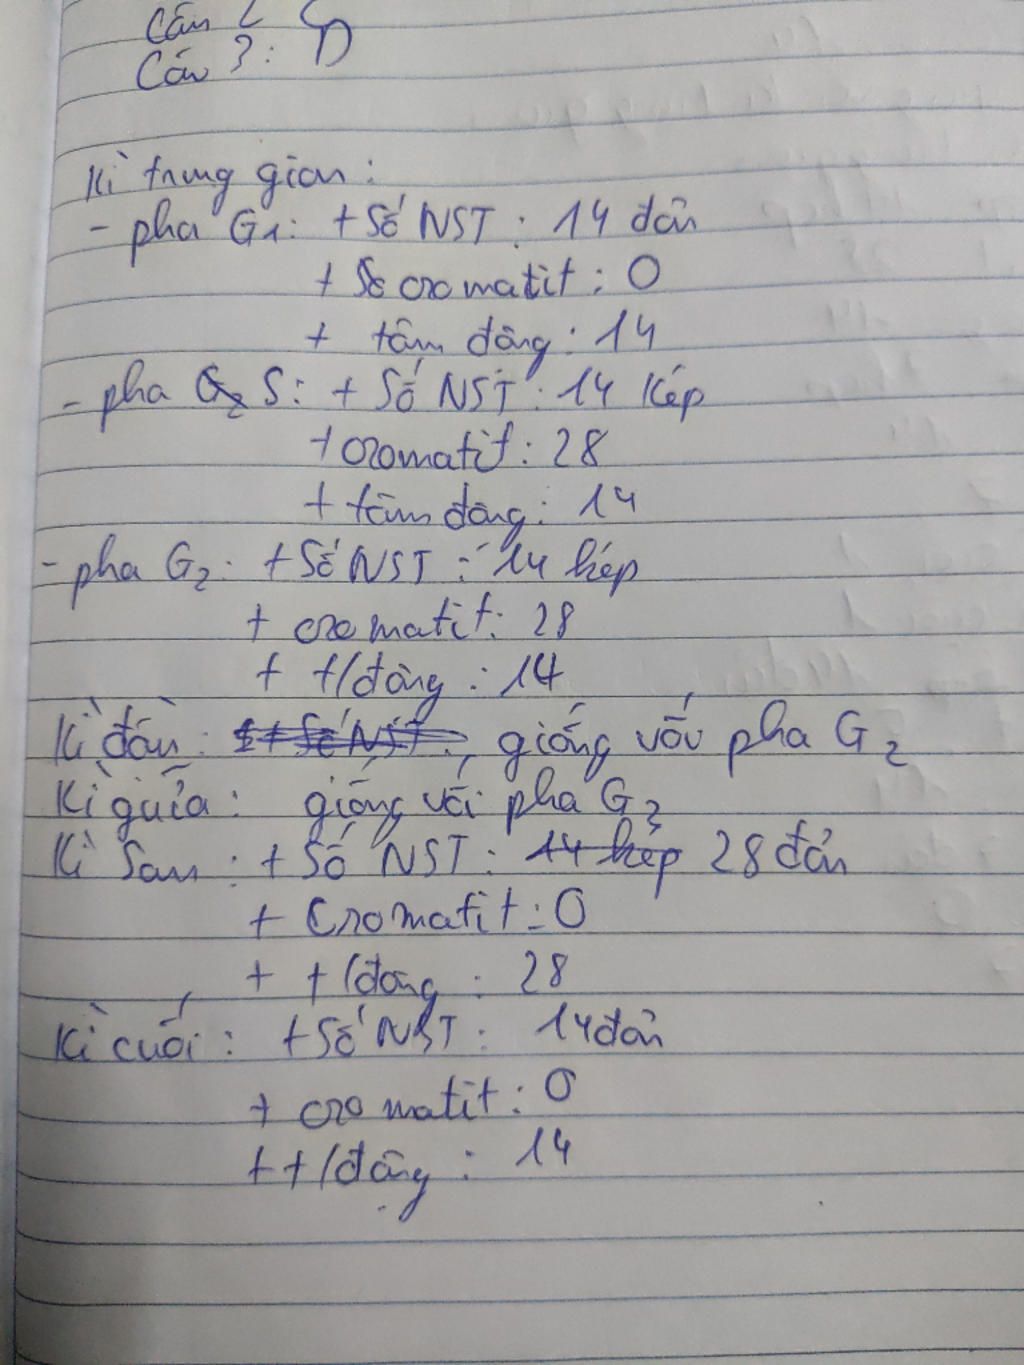 Câu 2
Câu 3: D
Kì trung gian:
- pha G1: + Số NST: 14 đơn
+ Số cromatit: 0
+ tâm động: 14
- pha S: + Số NST: 14 kép
+ cromatit: 28
+ tâm động: 14
- pha G2: + Số NST: 14 kép
+ cromatit: 28
+ t/động: 14
Kì đầu: giống với pha G2
Kì giữa: giống với pha G2
Kì sau: + Số NST: 14 kép 28 đơn
+ Cromatit: 0
+ t/động: 28
Kì cuối: + Số NST: 14 đơn
+ cromatit: 0
+ t/động: 14